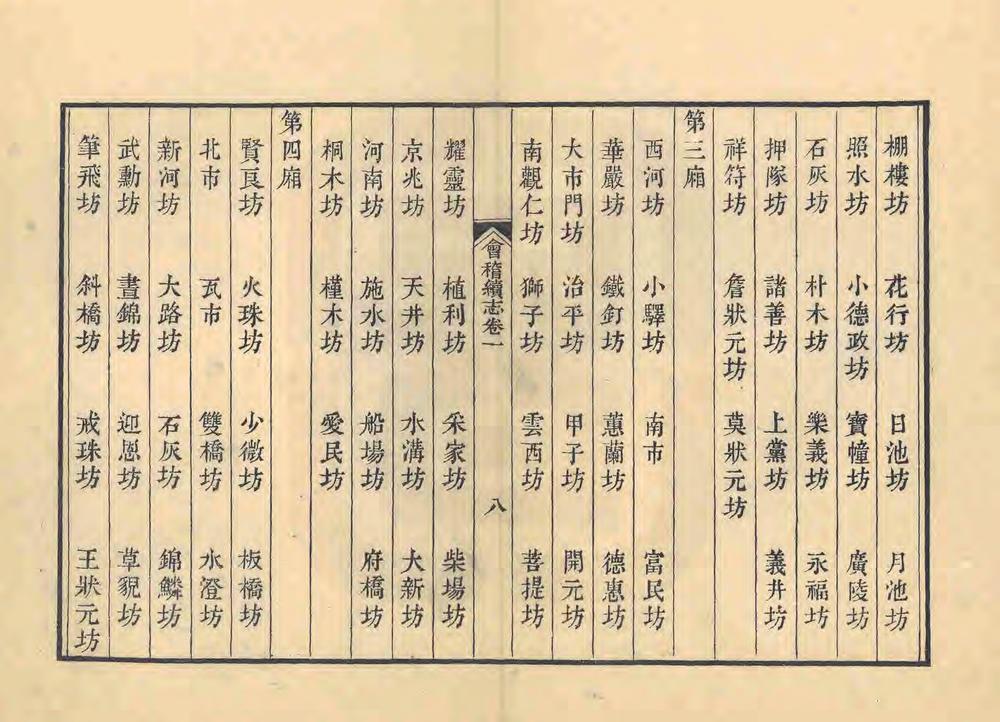 棚樓坊 花行坊 日池坊 月池坊
照水坊 小德政坊 寶幢坊 廣陵坊
石灰坊 朴木坊 樂義坊 永福坊
押隊坊 諸善坊 上黨坊 義井坊
祥符坊 詹狀元坊 莫狀元坊
第三廂
西河坊 小驛坊 南市 富民坊
華嚴坊 鐵釘坊 蕙蘭坊 德惠坊
大市門坊 治平坊 甲子坊 開元坊
南觀仁坊 獅子坊 雲西坊 菩提坊
會稽續志卷一 八
耀靈坊 植利坊 采家坊 柴場坊
京兆坊 天井坊 水溝坊 大新坊
河南坊 施水坊 船場坊 府橋坊
桐木坊 槿木坊 愛民坊
第四廂
賢良坊 火珠坊 少微坊 板橋坊
北市 瓦市 雙橋坊 水澄坊
新河坊 大路坊 石灰坊 錦鱗坊
武勳坊 晝錦坊 迎恩坊 草貌坊
筆飛坊 斜橋坊 戒珠坊 王狀元坊